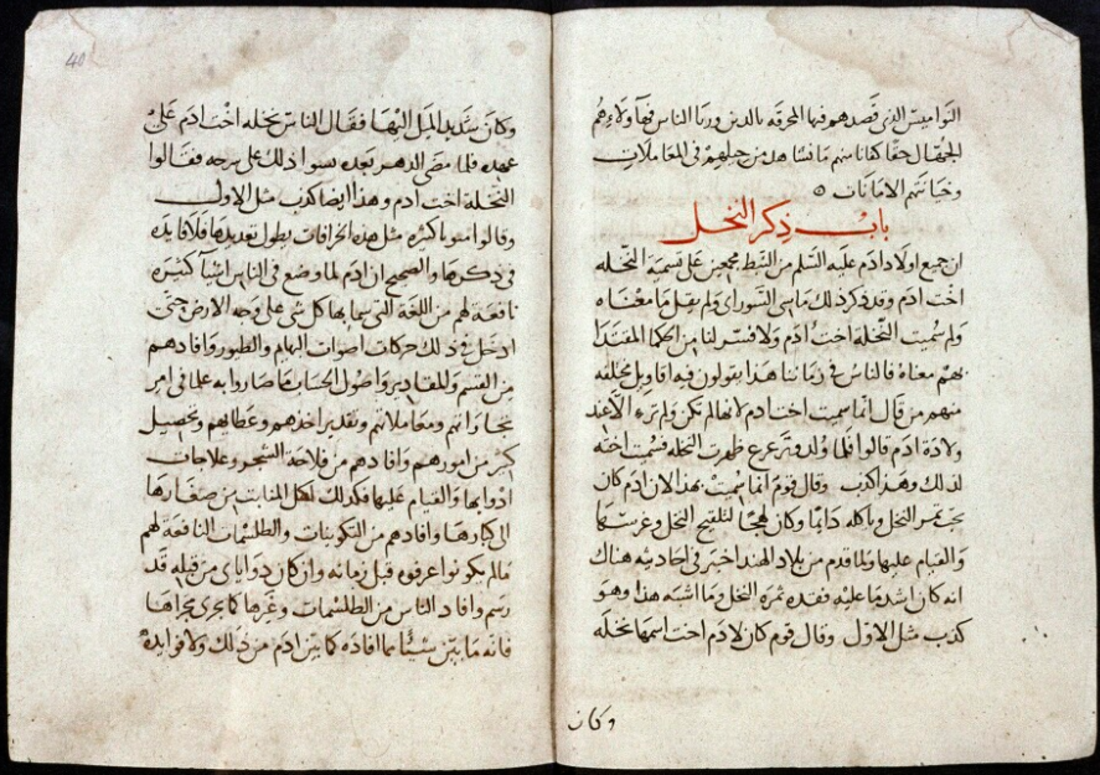 النواميس الذي قصدهم فيها المخرقه بالدين وربا الناس فيها ولاءهم
الجهال حقا كفانا منهم مانشاهده من حيلهم في المعاملات
وخيانتهم الامانات ٥
باب ذكر النخل
ان جميع اولاد ادم عليه السلم من النبط مجمعين على تسمية النخله
اخت ادم وقد ذكر ذلك ماسى السوراى ولم يقل ما معناه
ولم سميت النخله اخت ادم ولا فسر لنا من الحكما المقتدا
بهم معناه فالناس في زماننا هذا يقولون فيه اقاويل مختلفه
منهم من قال انما سميت اخت ادم لانها لم تكن ولم تر الا عند
ولادة ادم قالوا فلما ولد وترعرع ظهرت النخله فسميت اخته
لذلك وهذا كذب وقال قوم انما سميت بهذا لان ادم كان
يحب تمر النخل وياكله دايما وكان لهجا لتلقيح النخل وغرسها
والقيام عليها ولما قدم من بلاد الهند اخبر في احاديثه هناك
انه كان اشد ما عليه فقده ثمره النخل وما اشبه هذا وهو
كذب مثل الاول وقال قوم كان لادم اخت اسمها نخله
وكان
40
وكان شديد الميل اليها فقال الناس نخله اخت ادم على
عهده فلما مضى الدهر بعده نسوا ذلك على شرحه فقالوا
النخلة اخت ادم وهذا ايضا كذب مثل الاول
وقالوا امورا كثره مثل هذه الخرافات يطول تعديدها فلا فايده
في ذكرها والصحيح ان ادم لما وضع في الناس اشيآ كثيره
نافعة لهم من اللغة التي سما بها كل شى على وجه الارض حتى
ادخل في ذلك حركات اصوات البهايم والطيور وافادهم
من القسم والمقادير واصول الحساب ما صاروا به علما في امر
تجاراتهم ومعاملاتهم وتقدير اخذهم وعطايهم وتحصيل
كثير من امورهم وافادهم من فلاحة الشجر وعلاجات
ادوايها والقيام عليها فكذلك لكل المنابت من صغارها
الى كبارها وافادهم من التكوينات والطلسمات النافعة لهم
مالم يكونوا عرفوه قبل زمانه وان كان دواناى من قبله قد
رسم وافاد الناس من الطلسمات وغيرها كما يجرى مجراها
فانه ما بين شيئا مما افاده كما بين ادم من ذلك ولا فوايده